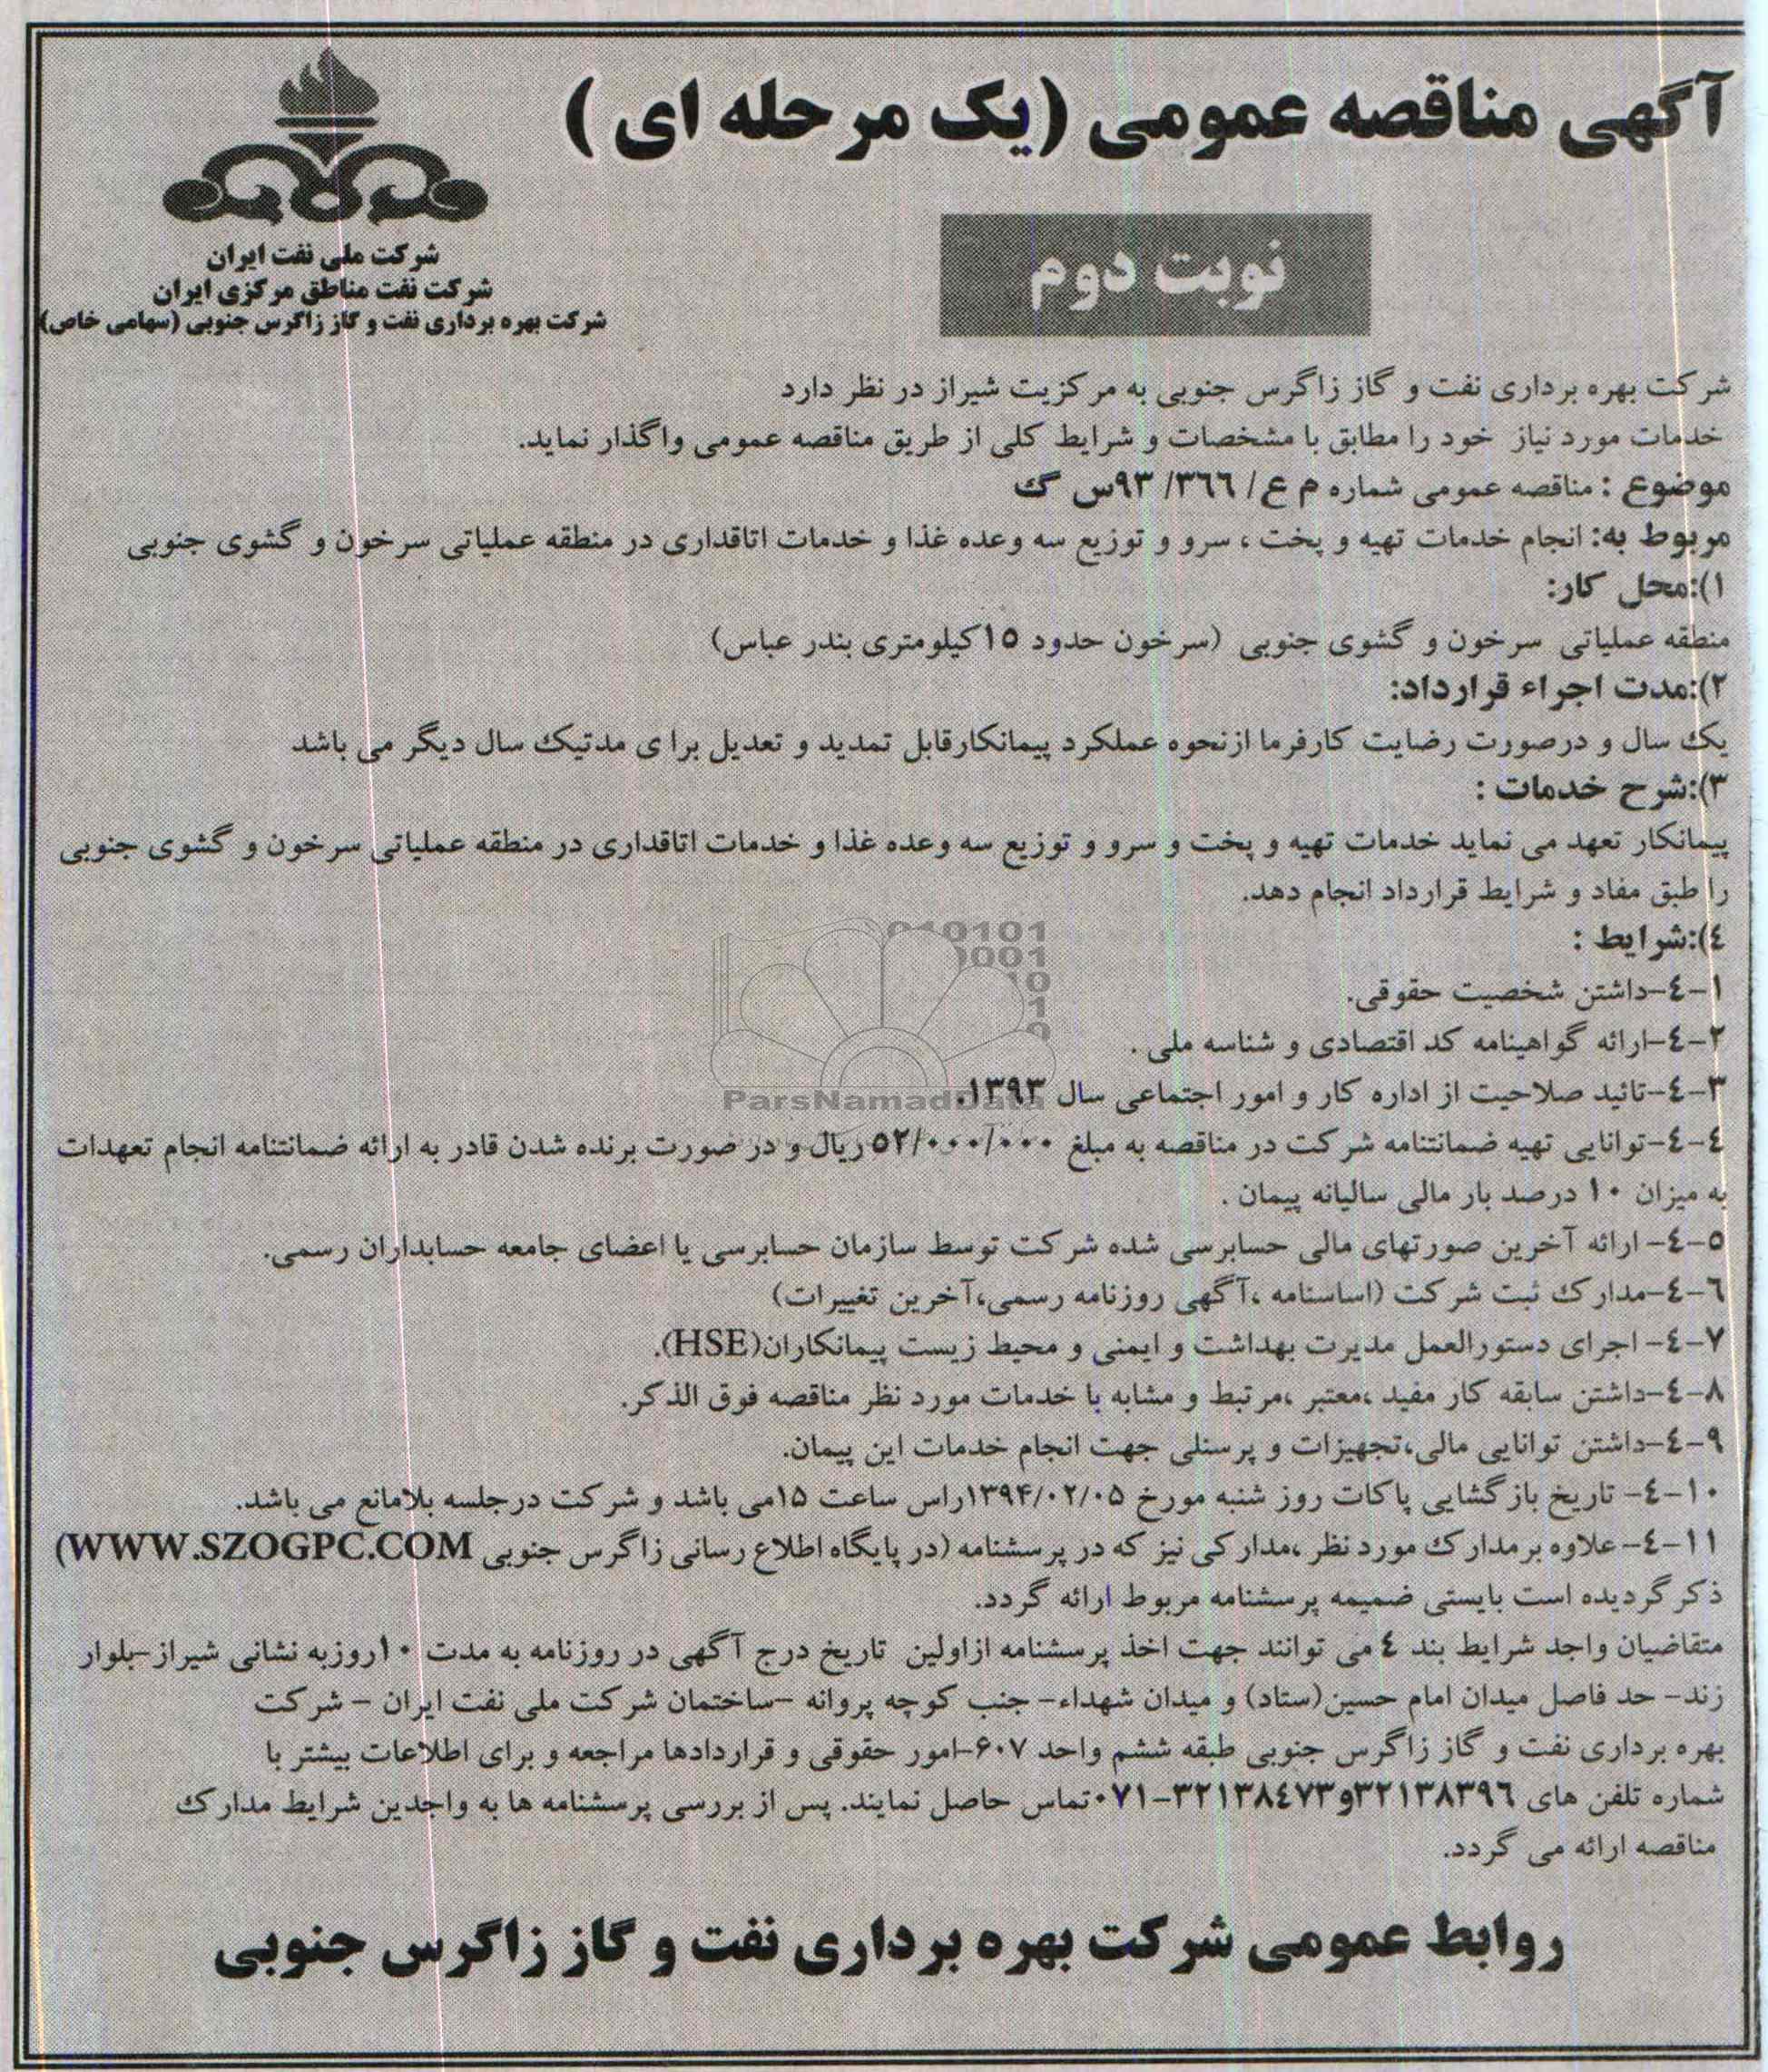 آگهی مناقصه عمومی (یک مرحله ای )
نوبت دوم
شرکت ملی نفت ایران
شرکت نفت مناطق مرکزی ایران
شرکت بهره برداری نفت و گاز زاگرس جنوبی (سهامی خاص)
شرکت بهره برداری نفت و گاز زاگرس جنوبی به مرکزیت شیراز در نظر دارد
خدمات مورد نیاز خود را مطابق با مشخصات و شرایط کلی از طریق مناقصه عمومی واگذار نماید.
موضوع : مناقصه عمومی شماره م ع/ ۳۶۶/ ۹۳س گ
مربوط به: انجام خدمات تهیه و پخت ، سرو و توزیع سه وعده غذا و خدمات اتاقداری در منطقه عملیاتی سرخون و گشوی جنوبی
۱):محل کار:
منطقه عملیاتی سرخون و گشوی جنوبی (سرخون حدود ۱۵کیلومتری بندر عباس)
۲):مدت اجراء قرارداد:
یک سال و درصورت رضایت کارفرما ازنحوه عملکرد پیمانکارقابل تمدید و تعدیل برا ی مدتیک سال دیگر می باشد
۳):شرح خدمات :
پیمانکار تعهد می نماید خدمات تهیه و پخت و سرو و توزیع سه وعده غذا و خدمات اتاقداری در منطقه عملیاتی سرخون و گشوی جنوبی
را طبق مفاد و شرایط قرارداد انجام دهد.
٤):شرایط :
۱-٤-داشتن شخصیت حقوقی.
۲-٤-ارائه گواهینامه کد اقتصادی و شناسه ملی .
۳-٤-تائید صلاحیت از اداره کار و امور اجتماعی سال ۱۳۹۳.
٤-٤-توانایی تهیه ضمانتنامه شرکت در مناقصه به مبلغ ۵۲/۰۰۰/۰۰۰ریال و در صورت برنده شدن قادر به ارائه ضمانتنامه انجام تعهدات
به میزان ۱۰ درصد بار مالی سالیانه پیمان .
۵-٤- ارائه آخرین صورتهای مالی حسابرسی شده شرکت توسط سازمان حسابرسی یا اعضای جامعه حسابداران رسمی.
٦-٤-مدارک ثبت شرکت (اساسنامه ،آگهی روزنامه رسمی،آخرین تغییرات)
۷-٤- اجرای دستورالعمل مدیرت بهداشت و ایمنی و محیط زیست پیمانکاران(HSE).
۸-٤-داشتن سابقه کار مفید ،معتبر ،مرتبط و مشابه با خدمات مورد نظر مناقصه فوق الذکر.
۹-٤-داشتن توانایی مالی،تجهیزات و پرسنلی جهت انجام خدمات این پیمان.
۱۰-٤- تاریخ بازگشایی پاکات روز شنبه مورخ ۱۳۹۴/۰۲/۰۵راس ساعت ۱۵می باشد و شرکت درجلسه بلامانع می باشد.
۱۱-٤-علاوه برمدارک مورد نظر ،مدارکی نیز که در پرسشنامه (در پایگاه اطلاع رسانی زاگرس جنوبی WWW.SZOGPC.COM)
ذکر گردیده است بایستی ضمیمه پرسشنامه مربوط ارائه گردد.
متقاضیان واجد شرایط بند ٤ می توانند جهت اخذ پرسشنامه ازاولین تاریخ درج آگهی در روزنامه به مدت ۱۰روزبه نشانی شیراز-بلوار
زند- حد فاصل میدان امام حسین(ستاد) و میدان شهداء- جنب کوچه پروانه -ساختمان شرکت ملی نفت ایران - شرکت
بهره برداری نفت و گاز زاگرس جنوبی طبقه ششم واحد ۶۰۷-امور حقوقی و قراردادها مراجعه و برای اطلاعات بیشتر با
شماره تلفن های ۳۲۱۳۸۳۹٦و۳۲۱۳۸٤۷۳-۰۷۱تماس حاصل نمایند. پس از بررسی پرسشنامه ها به واجدین شرایط مدارک
مناقصه ارائه می گردد.
روابط عمومی شرکت بهره برداری نفت و گاز زاگرس جنوبی
ParsNamadData